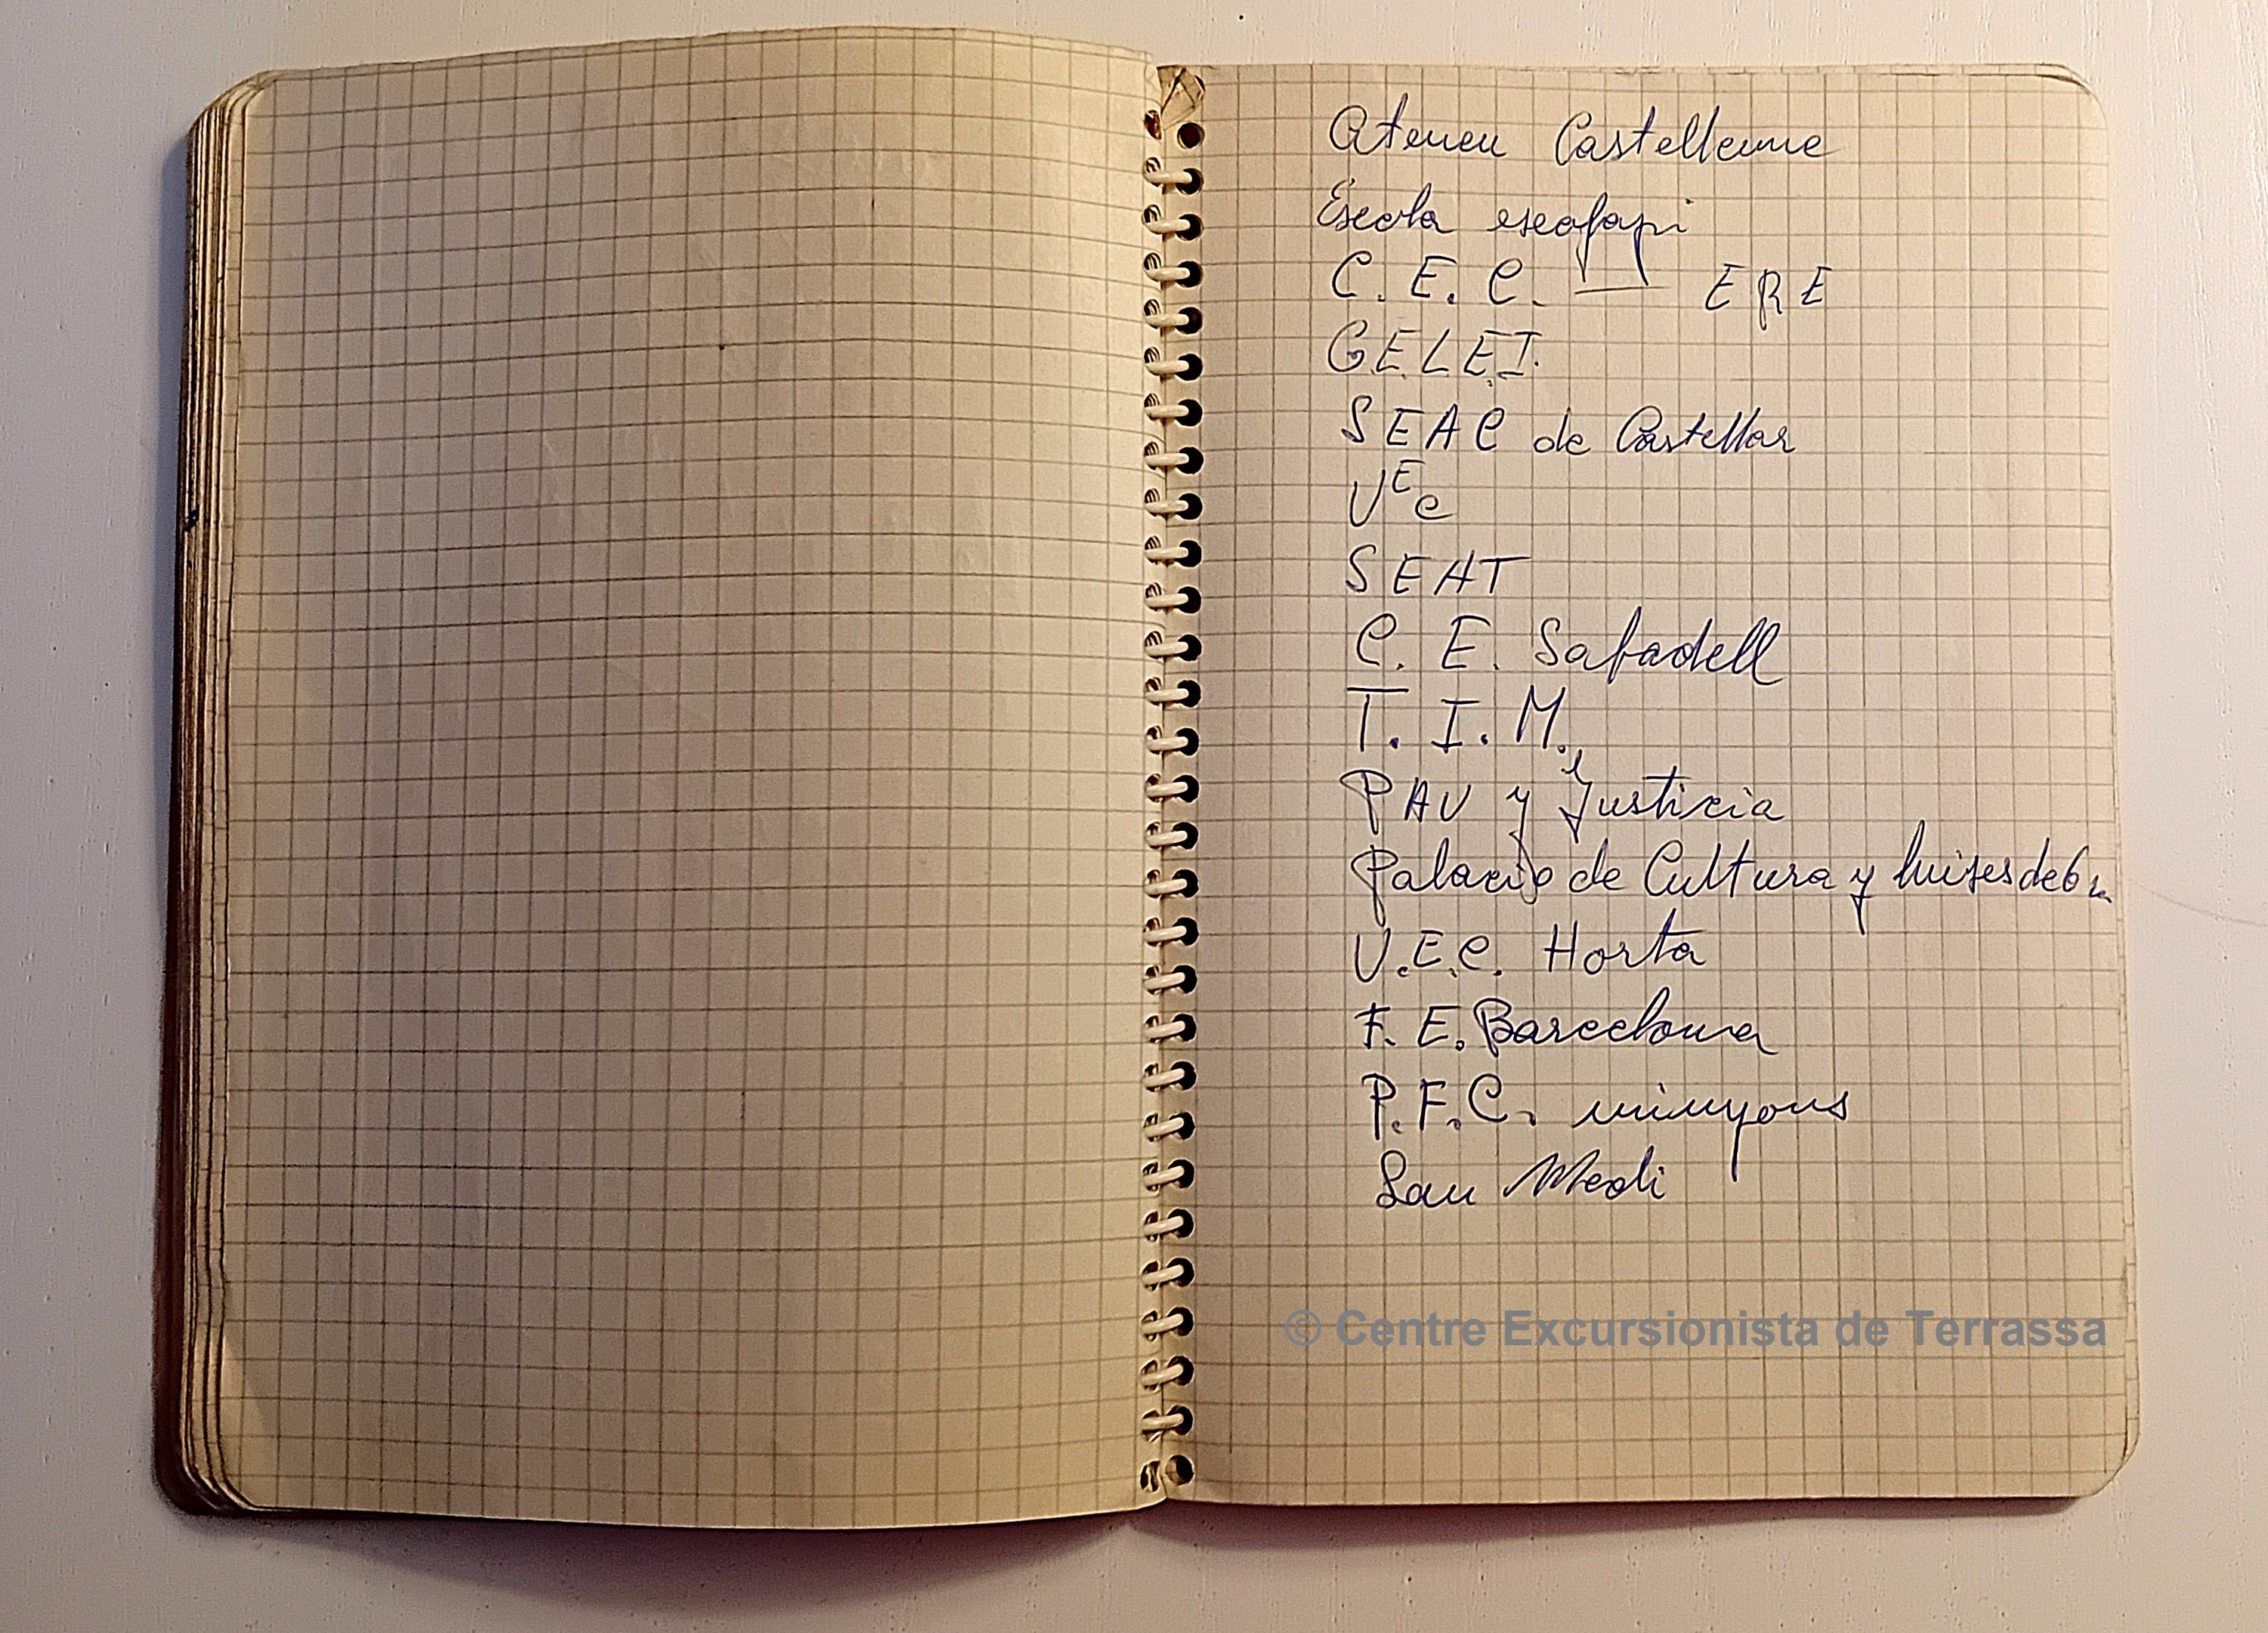 Ateneu Castellenne
Escola escafapi
C. E. C. — ERE
G.E.L.E.I.
SEAC de Castellar
UEC
SEAT
C. E. Sabadell
T. I. M.
PAU y Justicia
Palacio de Cultura y
U.E.C. Horta
F. E. Barcelona
P.F.C. minyons
San Medi
© Centre Excursionista de Terrassa